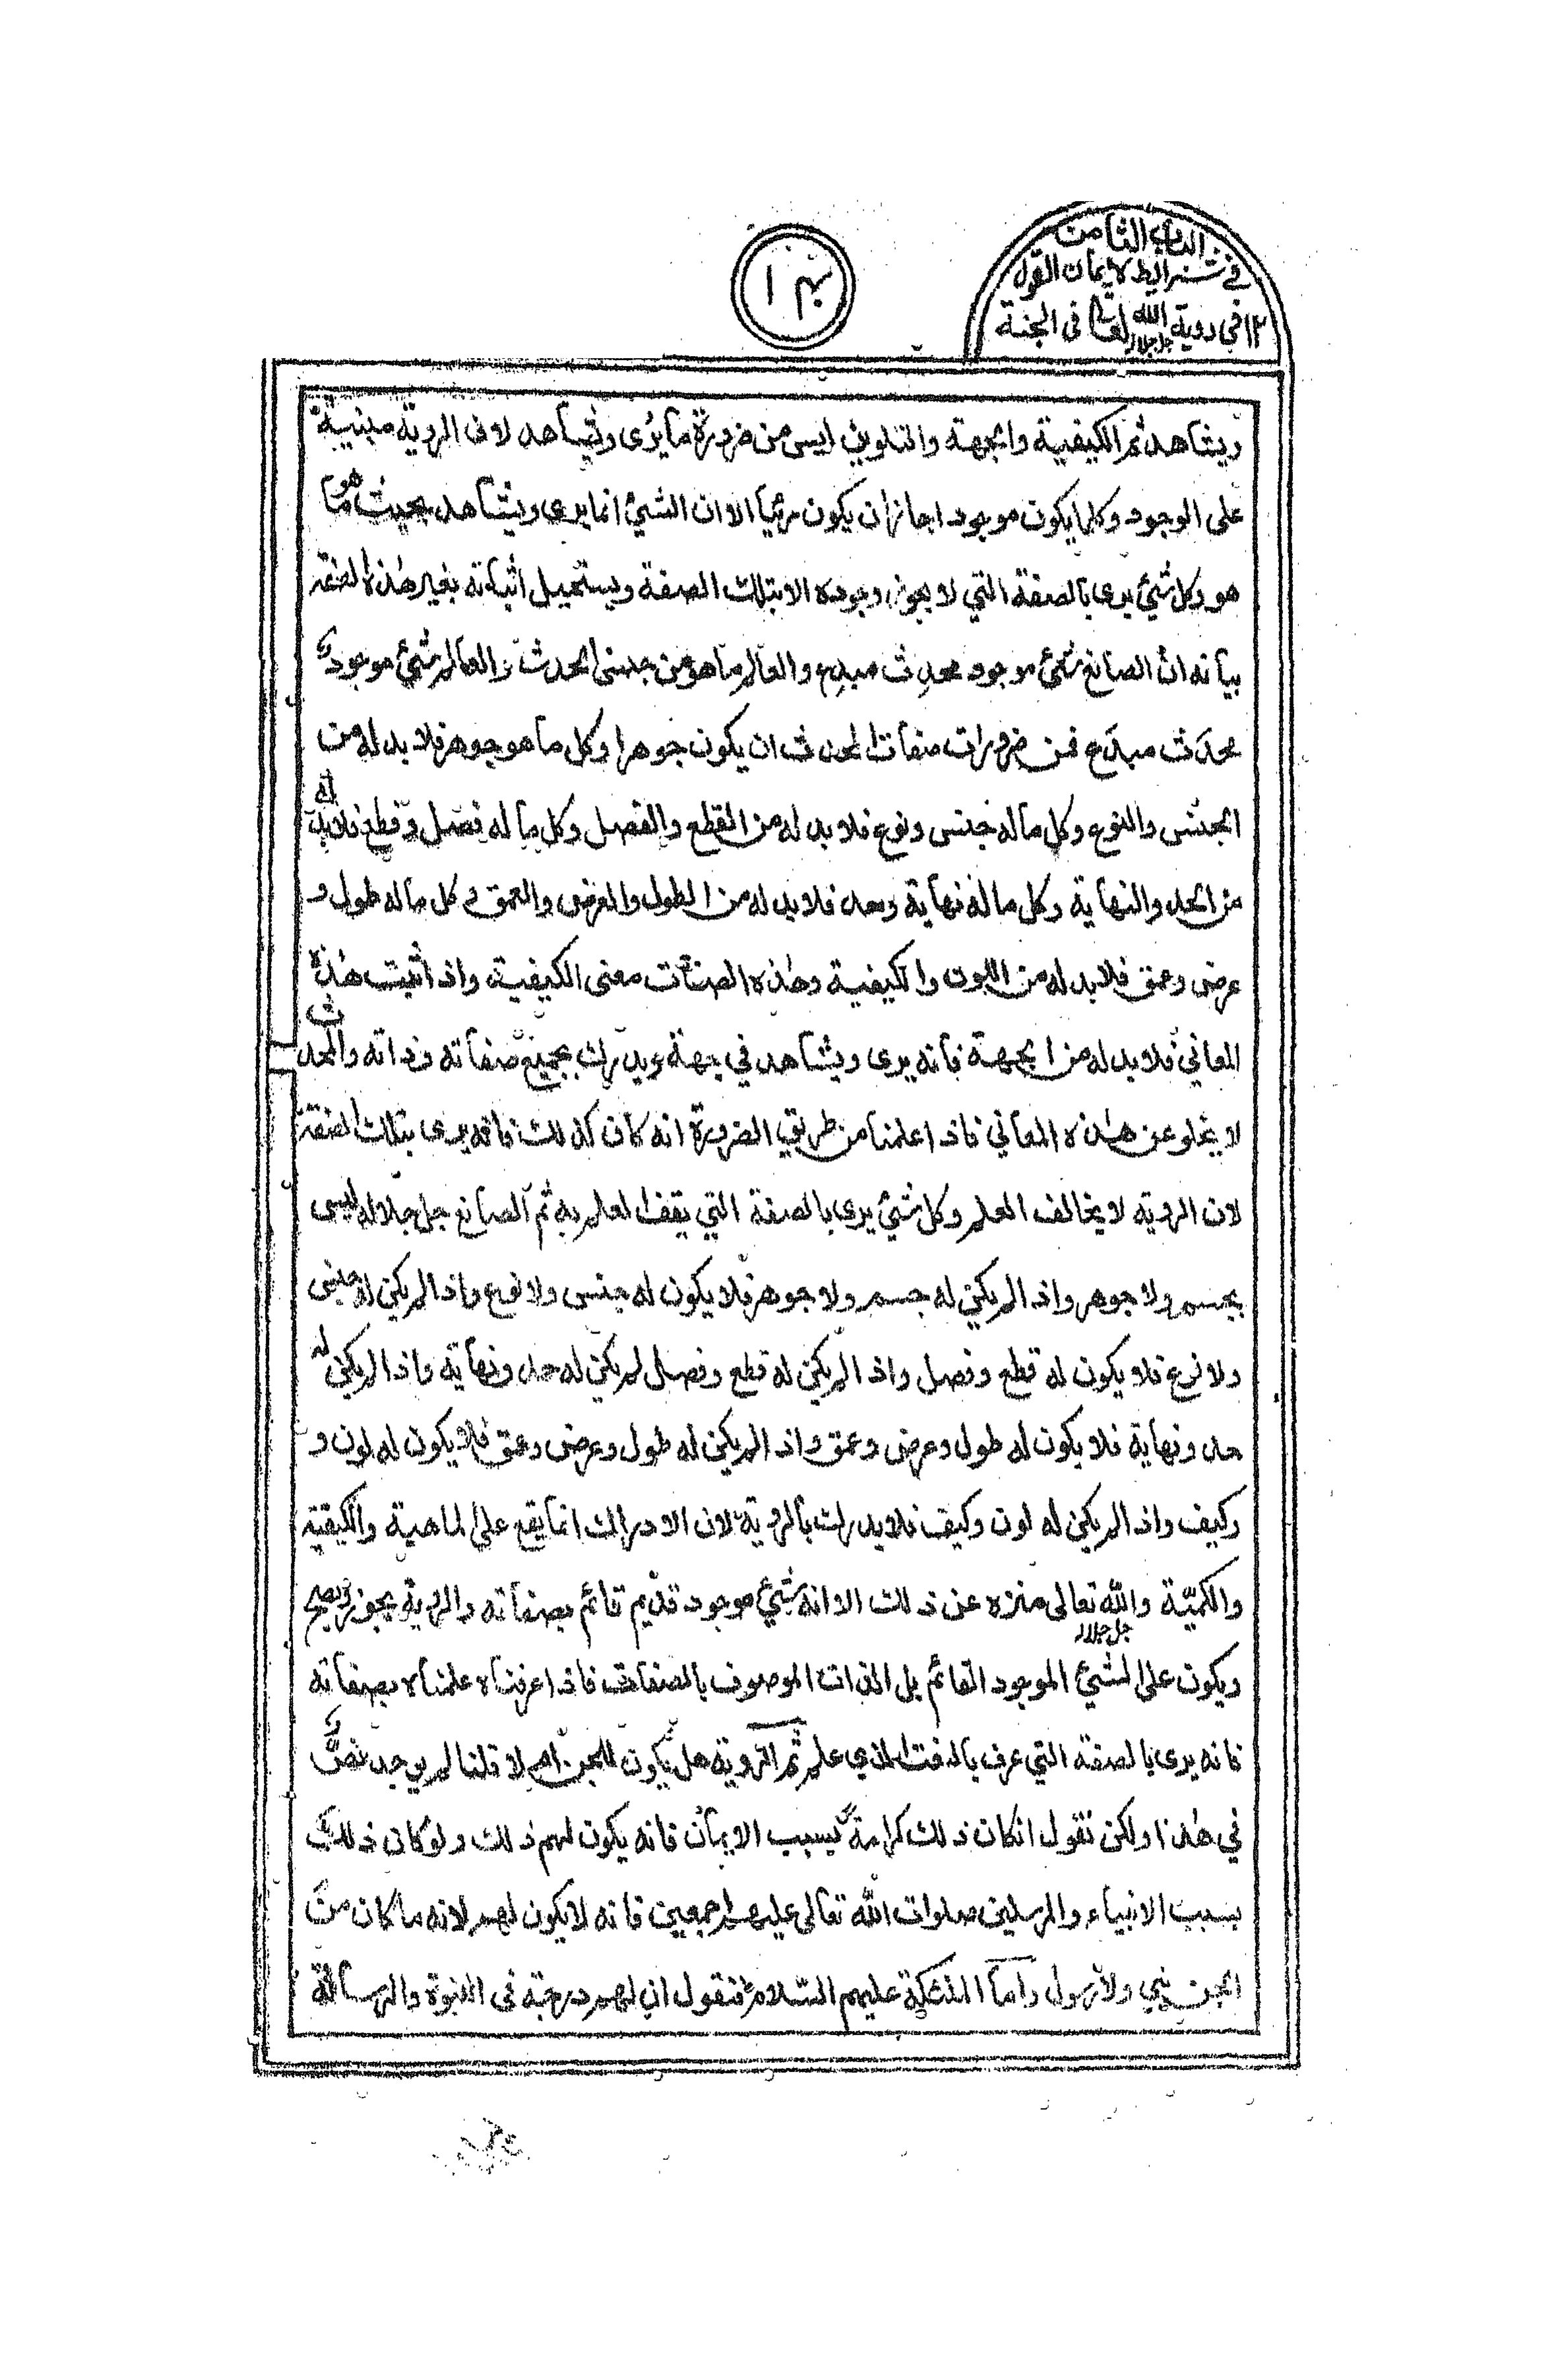 الباب الثامن
في شرايط الايمان القول
١٢ في روية الله جل جلاله تعالى فى الجنة
ويشاهد ثم الكيفية والجهة والتلوين ليس من ضرورة ما يرى ويشاهد لان الروية مبنية
على الوجود وكلما يكون موجودا جاز ان يكون مرئيا الا ان الشيئ انما يرى ويشاهد بحيث ما هو
هو وكل شيئ يرى بالصفة التي لا يجوز وجوده الا بتلك الصفة ويستحيل أثباته بغير هذه الصفة
بيانه ان الصانع شيئ موجود محدِث مبدِع والعالم ما هو من جنس الحدث والعالم شيئ موجود
محدَث مبدَع فمن ضرورات صفات المحدث ان يكون جوهرا وكل ما هو جوهر فلا بد له من
الجنس والنوع وكل ماله جنس ونوع فلا بد له من القطع والفصل وكل ما له فصل وقطع فلا بد له
من الحد والنهاية وكل ماله نهاية وحد فلا بد له من الطول والعرض والعمق وكل ماله طول و
عرض وعمق فلا بد له من اللون والكيفية وهذه الصفات معنى الكيفية واذ اثبت هذه
المعاني فلا بد له من الجهة فانه يرى ويشاهد في جهة ويدرك بجميع صفاته وذاته والمحدث
لا يخلو عن هذه المعاني فاذا علمنا من طريق الضرورة انه كان كذلك فانه يرى بتلك الصفة
لان الروية لا يخالف العلم وكل شيئ يرى بالصفة التي يقف العلم به ثم الصانع جل جلاله ليس
بجسم ولا جوهر واذ الم يكن له جسم ولا جوهر فلا يكون له جنس ولا نوع واذ الم يكن له جنس
ولا نوع فلا يكون له قطع وفصل واذ الم يكن له قطع وفصل لم يكن له حد ونهاية واذ الم يكن له
حد ونهاية فلا يكون له طول وعرض وعمق واذ الم يكن له طول وعرض وعمق فلا يكون له لون و
وكيف واذ الم يكن له لون وكيف فلا يدرك بالروية لان الادراك انما يقع على الماهية والكيفية
والكميّة والله جل جلاله تعالى منزه عن ذلك الا انه شيئ موجود قديم قائم بصفاته والروية يجوز ويصح
ويكون على الشيئ الموجود القائم بل الذات الموصوف بالصفات فاذا عرفناه علمناه بصفاته
فانه يرى بالصفة التي عرف علم ثم الروية هل يكون للجن ام لا قلنا لم يوجد نصّ
في هذا ولكن نقول انكان ذلك كرامة بسبب الايمان فانه يكون لهم ذلك ولو كان ذلك
بسبب الانبياء والمرسلين صلوات الله تعالى عليهم اجمعين فانه لا يكون لهم لانه ما كان من
الجن نبي ولا رسول واما الملئكة عليهم السلام فنقول ان لهم درجة فى النبوة والرسالة